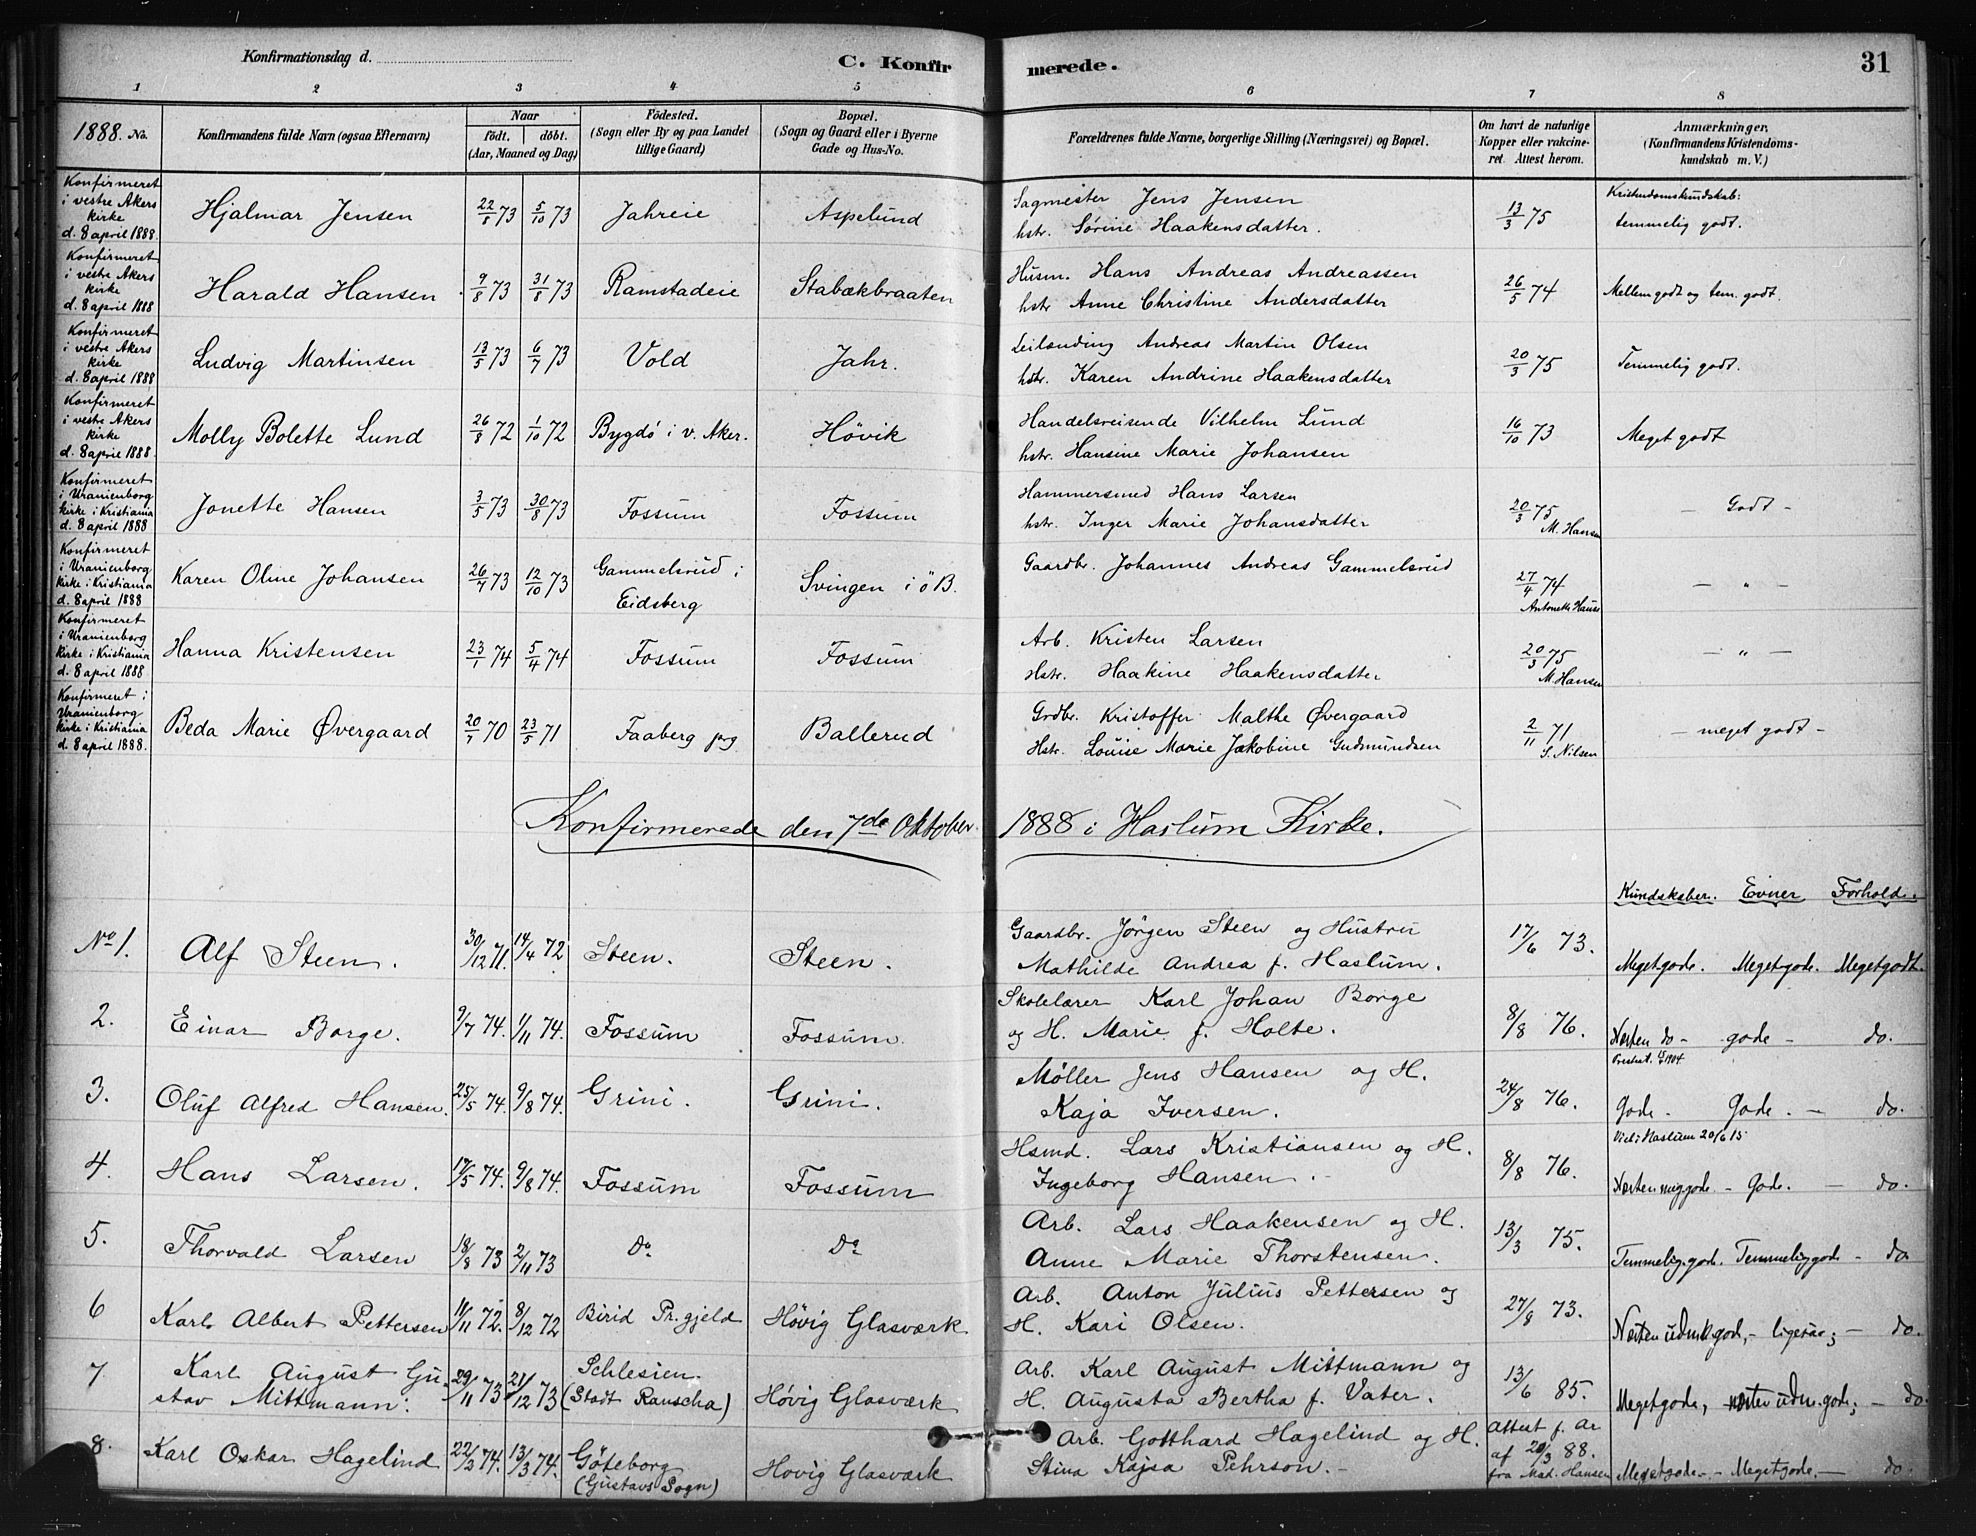 Konfirmationsdag d.
C. Konfirmerede.
31
1 2 3 4 5 6 7 8
1888. No.
Konfirmandens fulde Navn (ogsaa Efternavn)
Naar
födt. döbt.
(Aar, Maaned og Dag)
Födested.
(Sogn eller By og paa Landet
tillige Gaard)
Bopæl.
(Sogn og Gaard eller i Byerne
Gade og Hus-No.
Forældrenes fulde Navne, borgerlige Stilling (Næringsvei) og Bopæl.
Om havt de naturlige
Kopper eller vakcine-
ret. Attest herom.
Anmærkninger.
(Konfirmandens Kristendoms-
kundskab m. V.)
Konfirmeret
i vestre Akers
kirke
d. 8 april 1888.
Hjalmar Jensen
22/8 73 5/10 73
Jahreie
Aspelund
Sagmester Jens Jensen
hstr. Sørine Haakensdatter.
13/3 75
Kristendomskundskab:
temmelig godt.
Konfirmeret
i vestre Akers
kirke
d. 8 april 1888
Harald Hansen
9/8 73 31/8 73
Ramstadeie
Stabækbraaten
Husm. Hans Andreas Andreassen
hstr Anne Christine Andersdatter
26/5 74
Mellemgodt og tem. godt.
Konfirmeret
i vestre Akers
kirke
d. 8 april 1888
Ludvig Martinsen
13/5 73 6/7 73
Vold
Jahr.
Leilænding Andreas Martin Olsen
hstr. Karen Andrine Haakensdatter
20/3 75
Temmelig godt.
Konfirmeret
i vestre Akers
kirke
d. 8 april 1888.
Molly Bolette Lund
26/8 72 1/10 72
Bygdö i v. Aker.
Høvik
Handelsreisende Vilhelm Lund
hstr. Hansine Marie Johansen
16/10 73
Meget godt
Konfirmeret
i Uranienborg
kirke i Kristiania
d. 8 april 1888
Jonette Hansen
3/5 73 30/8 73
Fossum
Fossum
Hammersmed Hans Larsen
hstr. Inger Marie Johansdatter
20/3 75
M. Hansen
— Godt —
Konfirmeret
i Uranienborg
kirke i Kristiania
d. 8 april 1888
Karen Oline Johansen
26/7 73 12/10 73
Gammelsrud i
Eidsberg
Svingen i ö B.
Gaardbr. Johannes Andreas Gammelsrud
27/4 74
— " —
Konfirmeret
i Uranienborg
kirke i Kristiania
d. 8 april 1888
Hanna Kristensen
23/1 74 5/4 74
Fossum
Fossum
Arb. Kristen Larsen
Hstr. Haakine Haakensdatter
20/3 75
M. Hansen
— " —
Konfirmeret i
Uranienborg
kirke i Kristiania
d. 8 april 1888.
Beda Marie Øvergaard
20/7 70 23/5 71
Faaberg prg
Ballerud
Grdbr. Kristoffer Malthe Øvergaard
Hstr. Louise Marie Jakobine Gudmundsen
2/11 71
S. Nilsen
— meget godt —
Konfirmerede den 7de Oktober 1888 i Haslum Kirke.
Kundskaber. Evner Forhold.
No 1.
Alf Steen.
30/12 71. 14/4 72
Steen.
Steen.
Gaardbr. Jörgen Steen og Hustru
Mathilde Andrea f. Haslum.
17/6 73.
Megetgode. Megetgode. Megetgodt.
2.
Einar Borge.
9/7 74. 1/11 74.
Fossum
Fossum.
Skolelærer Karl Johan Borge
og H. Marie f. Holte.
8/8 76.
Næsten do — gode — do.
3.
Oluf Alfred Hansen.
25/5 74. 9/8 74.
Grini.
Grini.
Møller Jens Hansen og H.
Kaja Iversen.
24/8 76.
Gode — Gode. — do.
4.
Hans Larsen.
17/5 74. 9/8 74.
Fossum
Fossum
Hsmd. Lars Kristiansen og H.
Ingeborg Hansen.
8/8 76.
Viet i Haslum 20/6 15
Næsten meg.gode. — Gode. — do.
5.
Thorvald Larsen
18/8 73 2/11 73
Do
Do
Arb. Lars Haakensen og H.
Anne Marie Thorstensen.
13/3 75.
Temmeliggode. Temmeliggode — do
6
Karl Albert Pettersen
11/11 72. 8/12 72
Birid Pr.gjeld
Høvig Glasværk
Arb. Anton Julius Pettersen og
H. Kari Olsen.
27/8 73.
Næsten udmk.gode, — ligesaa; — do.
7
Karl August Gu-
stav Mittmann.
29/11 73 21/12 73
Schlesien.
(Stadt Rauscha)
Høvig Glasværk
Arb. Karl August Mittmann og
H. Augusta Bertha f. Vater.
13/6 85.
Megetgode, næsten udm.gode; — do.
8.
Karl Oskar Hagelind
22/2 74. 13/3 74.
Göteborg
(Gustavs Sogn)
Hovig Glasværk
Arb. Gotthard Hagelind og H.
Stina Kajsa Pehrson. —
Attest f. Ar
af 20/3 88.
fra Mad. Hansen
Megetgode — Megetgode. — do.